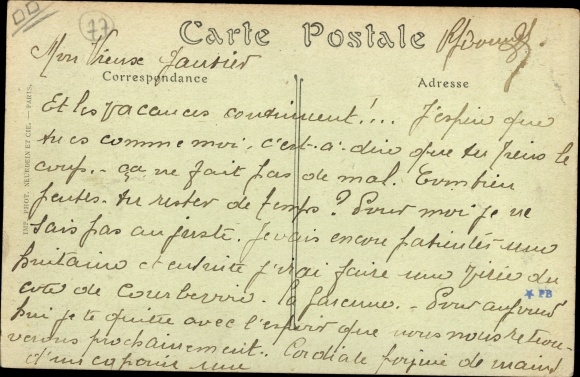 77
Carte Postale
Mon Vieux
Correspondance
Adresse
Et les vacances continuent!... J'espère que
tu es comme moi, c'est-à-dire que tu tiens le
coup. - ça ne fait pas de mal. Combien
penses-tu rester de temps? Pour moi je ne
sais pas au juste. Je vais encore patienter une
huitaine et ensuite j'irai faire une virée du
côté de Courbevoie. La Garenne. - Pour aujourd'
hui je te quitte avec l'espoir que nous nous retrou-
verons prochainement. Cordiale poignée de mains
d'un copain
IMP. PHOT. NEURDEIN ET CIE. — PARIS.
PB